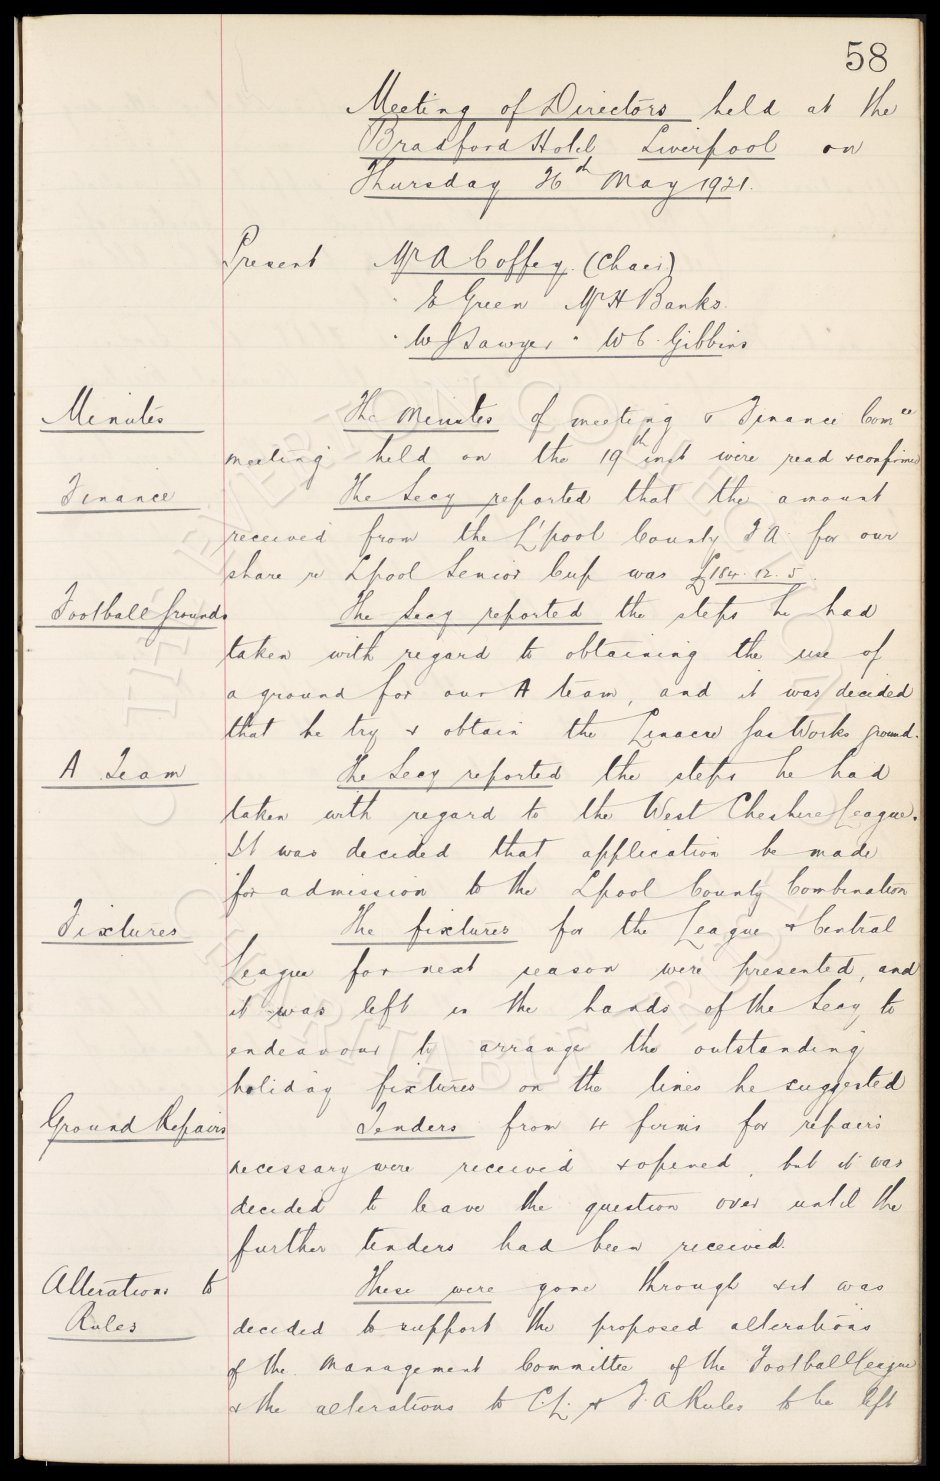 58
Meeting of Directors held at the
Bradford Hotel Liverpool on
Thursday 26th May 1921.
Present Mr A Coffey. (Chair)
" E Green Mr H Banks.
" W J Sawyer " W C. Gibbins
Minutes The Minutes of meeting & Finance Comee
meeting held on the 19th inst were read & confirmed
Finance The Secy reported that the amount
received from the L'pool County F A. for our
share re Lpool Senior Cup was £184. 12. 5.
Football Grounds The Secy reported the steps he had
taken with regard to obtaining the use of
a ground for our A team, and it was decided
that he try & obtain the Linacre Gas Works ground.
A Team The Secy reported the steps he had
taken with regard to the West Cheshire League.
It was decided that application be made
for admission to the Lpool County Combination
Fixtures The fixtures for the League & Central
League for next season were presented, and
it was left in the hands of the Secy to
endeavour to arrange the outstanding
holiday fixtures on the lines he suggested
Ground Repairs Tenders from 4 firms for repairs
necessary were received & opened, but it was
decided to leave the question over until the
further tenders had been received.
Alterations to These were gone through & it was
Rules decided to support the proposed alterations
of the Management Committee of the Football League
& the alterations to C.L. & F.A Rules to be left